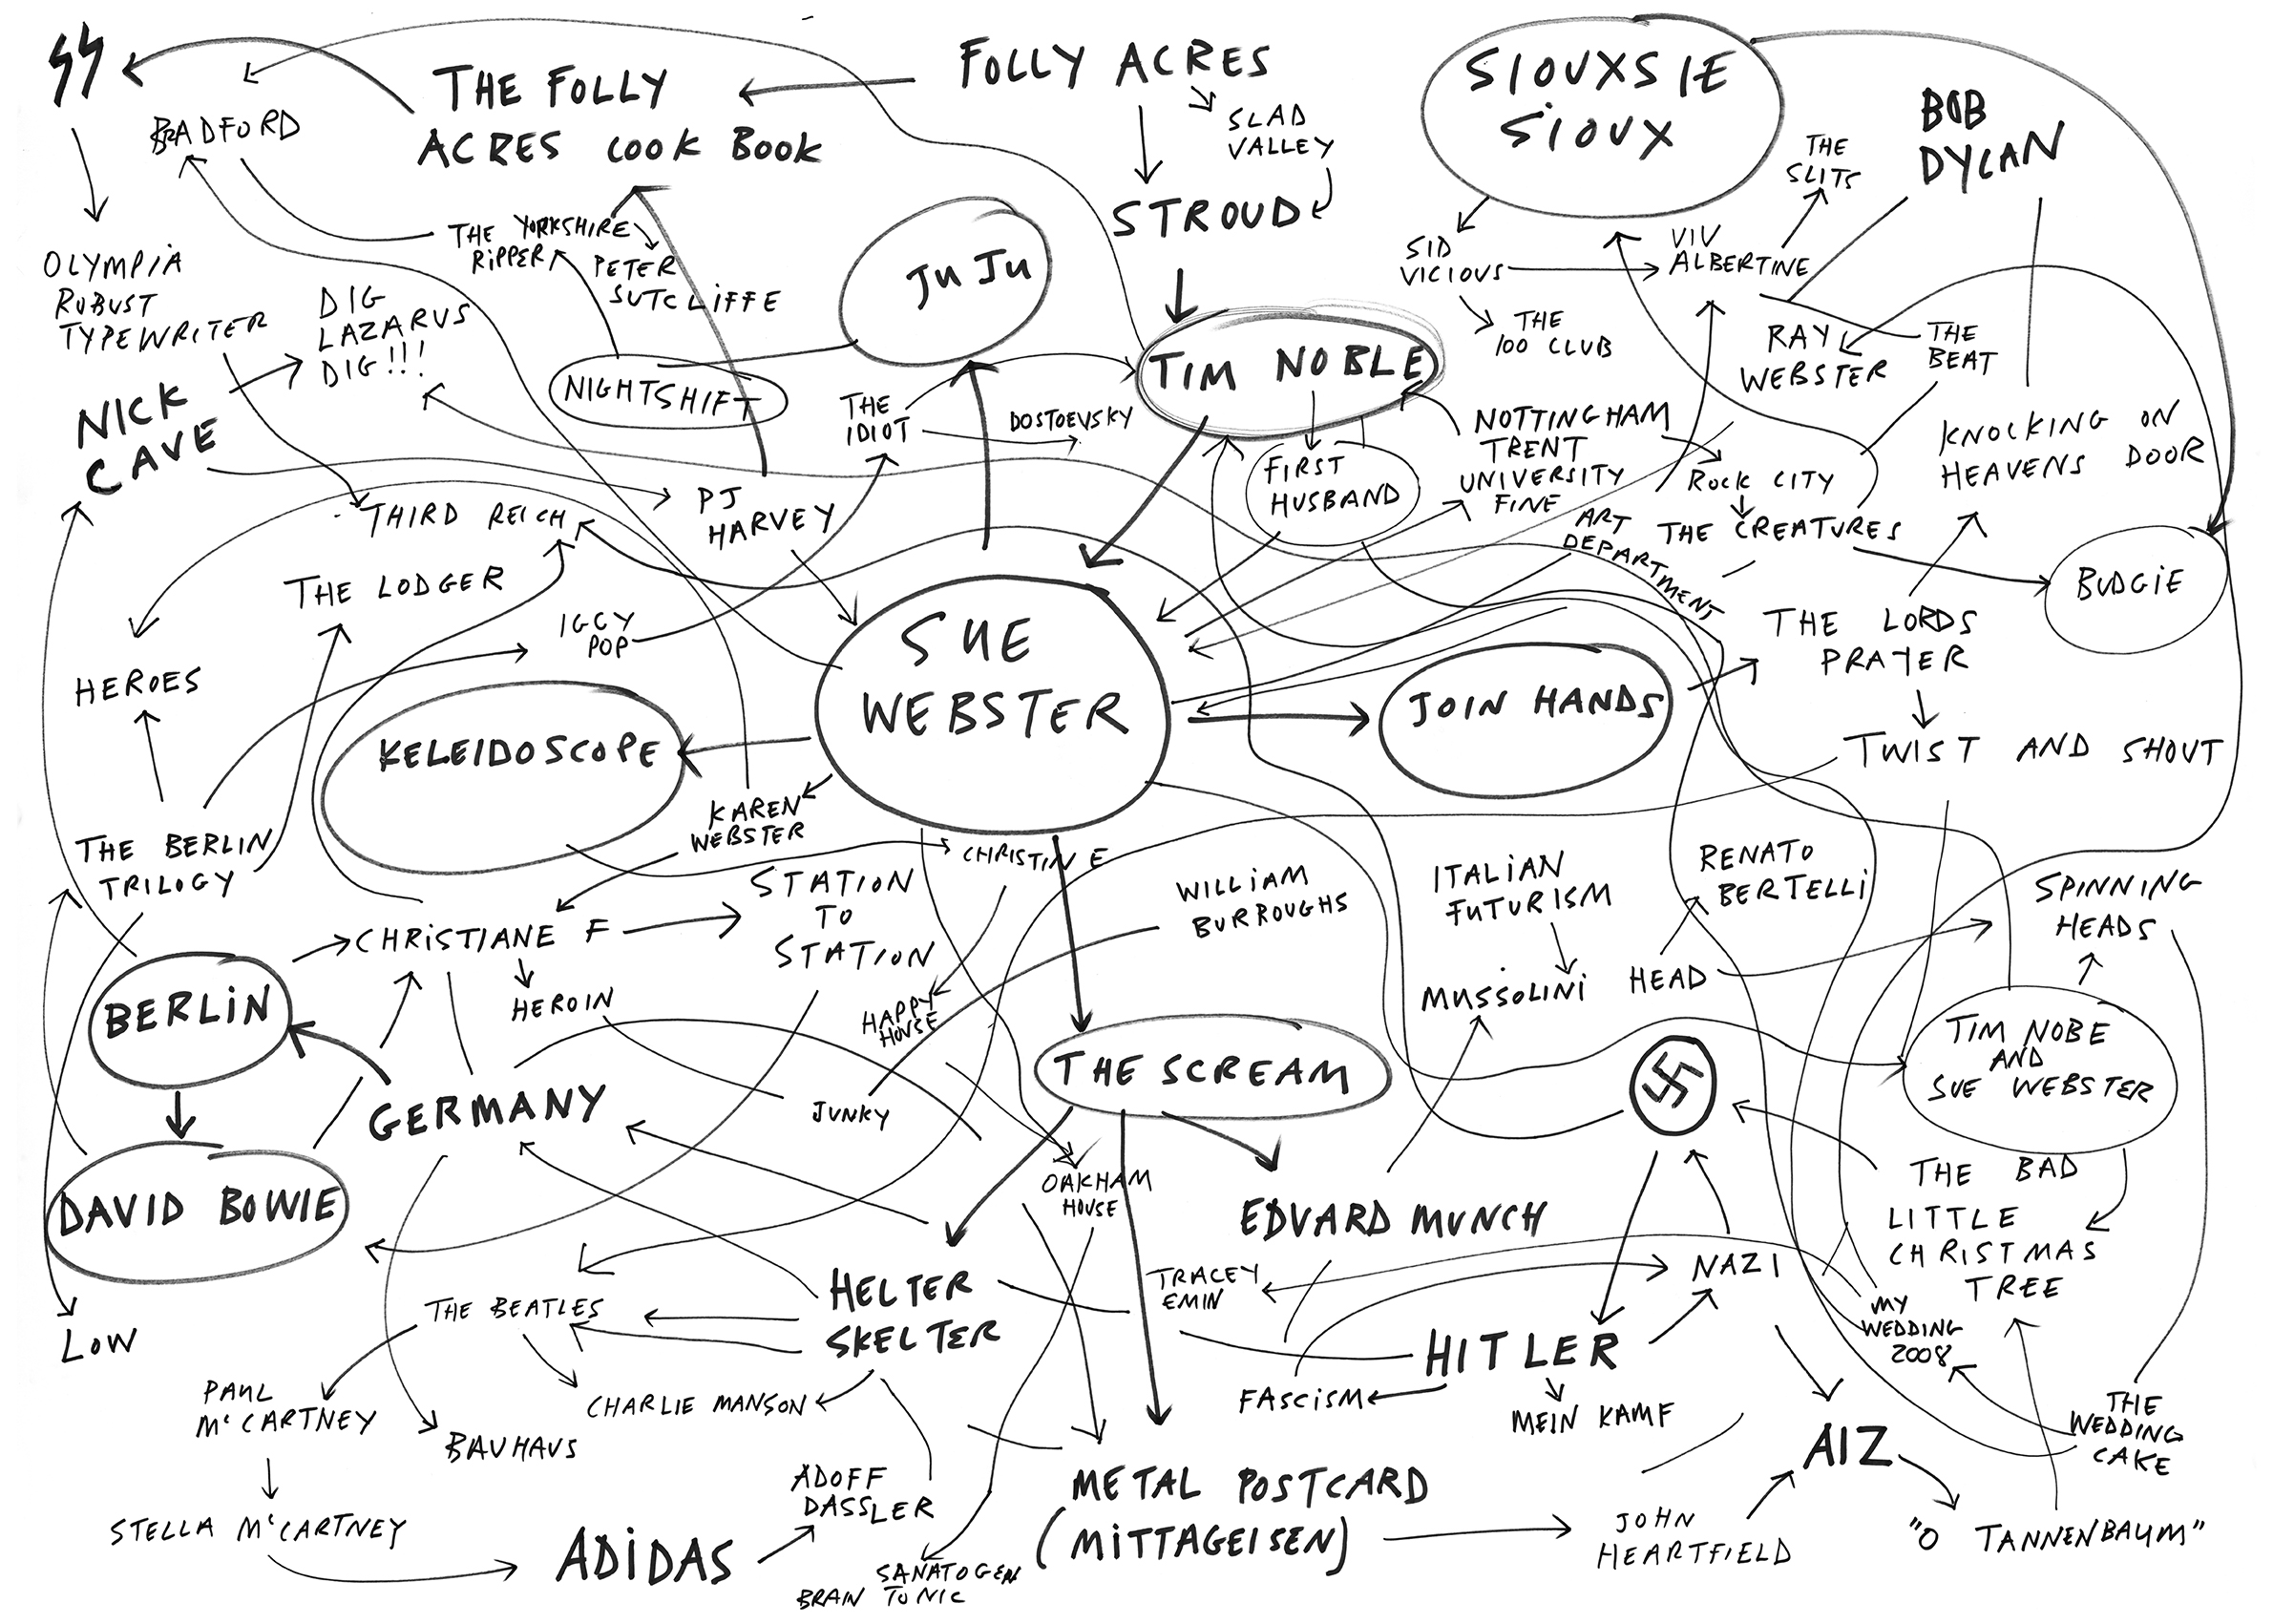 FOLLY ACRES
SIOUXSIE
SIOUX
THE FOLLY
ACRES COOK BOOK
SLAD
VALLEY
BOB
DYLAN
BRADFORD
THE
SLITS
STROUD
THE YORKSHIRE
RIPPER
PETER
SUTCLIFFE
JUJU
SID
VICIOUS
VIV
ALBERTINE
OLYMPIA
ROBUST
TYPEWRITER
DIG
LAZARUS
DIG!!!
THE
100 CLUB
RAY
WEBSTER
THE
BEAT
TIM NOBLE
NICK
CAVE
NIGHTSHIFT
THE
IDIOT
DOSTOEVSKY
NOTTINGHAM
TRENT
UNIVERSITY
FINE
ART
DEPARTMENT
FIRST
HUSBAND
ROCK CITY
KNOCKING ON
HEAVENS DOOR
THIRD REICH
PJ
HARVEY
THE CREATURES
BUDGIE
THE LODGER
IGGY
POP
SUE
WEBSTER
THE LORDS
PRAYER
HEROES
KELEIDOSCOPE
JOIN HANDS
TWIST AND SHOUT
KAREN
WEBSTER
THE BERLIN
TRILOGY
CHRISTINE
STATION
TO
STATION
WILLIAM
BURROUGHS
ITALIAN
FUTURISM
RENATO
BERTELLI
SPINNING
HEADS
CHRISTIANE F
HEROIN
MUSSOLINI
HEAD
BERLIN
HAPPY
HOUSE
THE SCREAM
TIM NOBE
AND
SUE WEBSTER
GERMANY
JUNKY
DAVID BOWIE
OAKHAM
HOUSE
EDVARD MUNCH
THE BAD
LITTLE
CHRISTMAS
TREE
HELTER
SKELTER
TRACEY
EMIN
NAZI
MY
WEDDING
2008
THE BEATLES
LOW
HITLER
PAUL
McCARTNEY
CHARLIE MANSON
FASCISM
MEIN KAMF
THE
WEDDING
CAKE
BAUHAUS
AIZ
ADOFF
DASSLER
METAL POSTCARD
(MITTAGEISEN)
STELLA McCARTNEY
ADIDAS
JOHN
HEARTFIELD
"O TANNENBAUM"
SANATOGEN
BRAIN TONIC